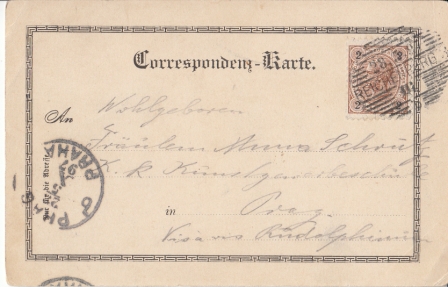 Correspondenz-Karte.
2 2
REICHENBERG
An
Wohlgeboren
Fräulein Minna Schütz
K. k. Kunstgewerbeschule
in Prag.
Vis a vis Rudolphinum
Nur für die Adresse
PRAG
PRAHA
6